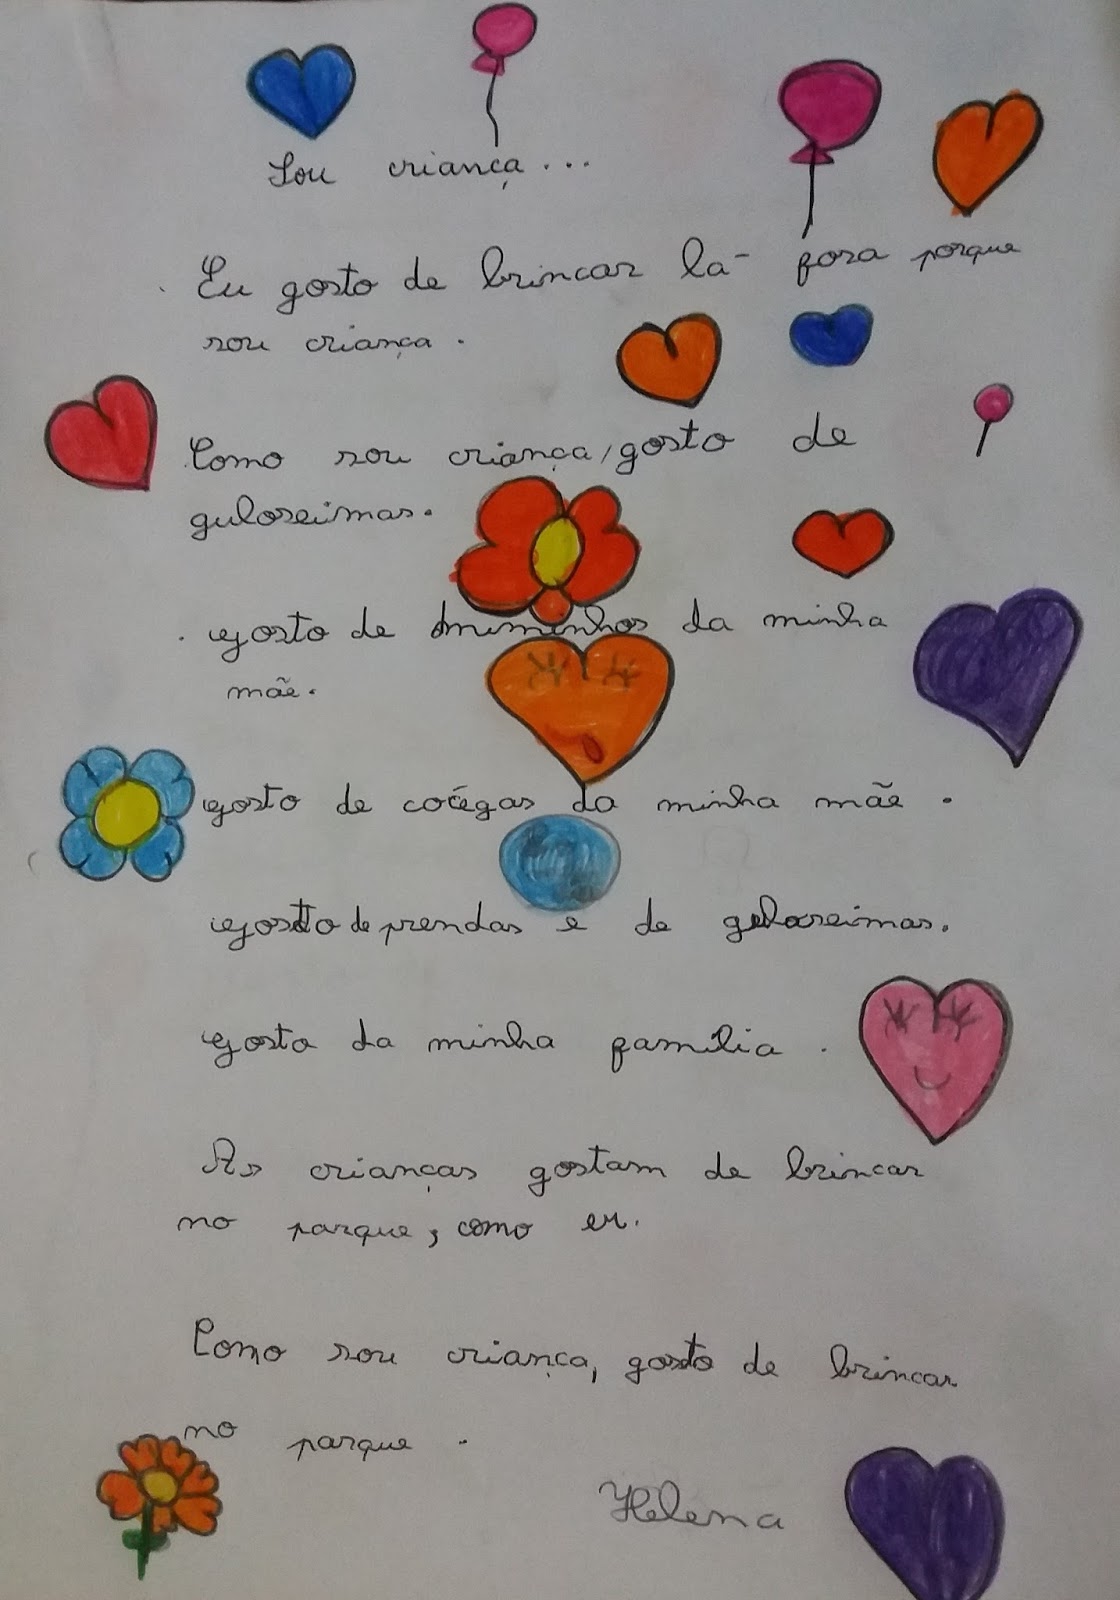 Sou criança...
Eu gosto de brincar lá fora porque
sou criança.
Como sou criança, gosto de
guloseimas.
Gosto de miminhos da minha
mãe.
Gosto de cócegas da minha mãe.
Gosto de prendas e de guloseimas.
Gosto da minha família.
As crianças gostam de brincar
no parque, como eu.
Como sou criança, gosto de brincar
no parque.
Helena